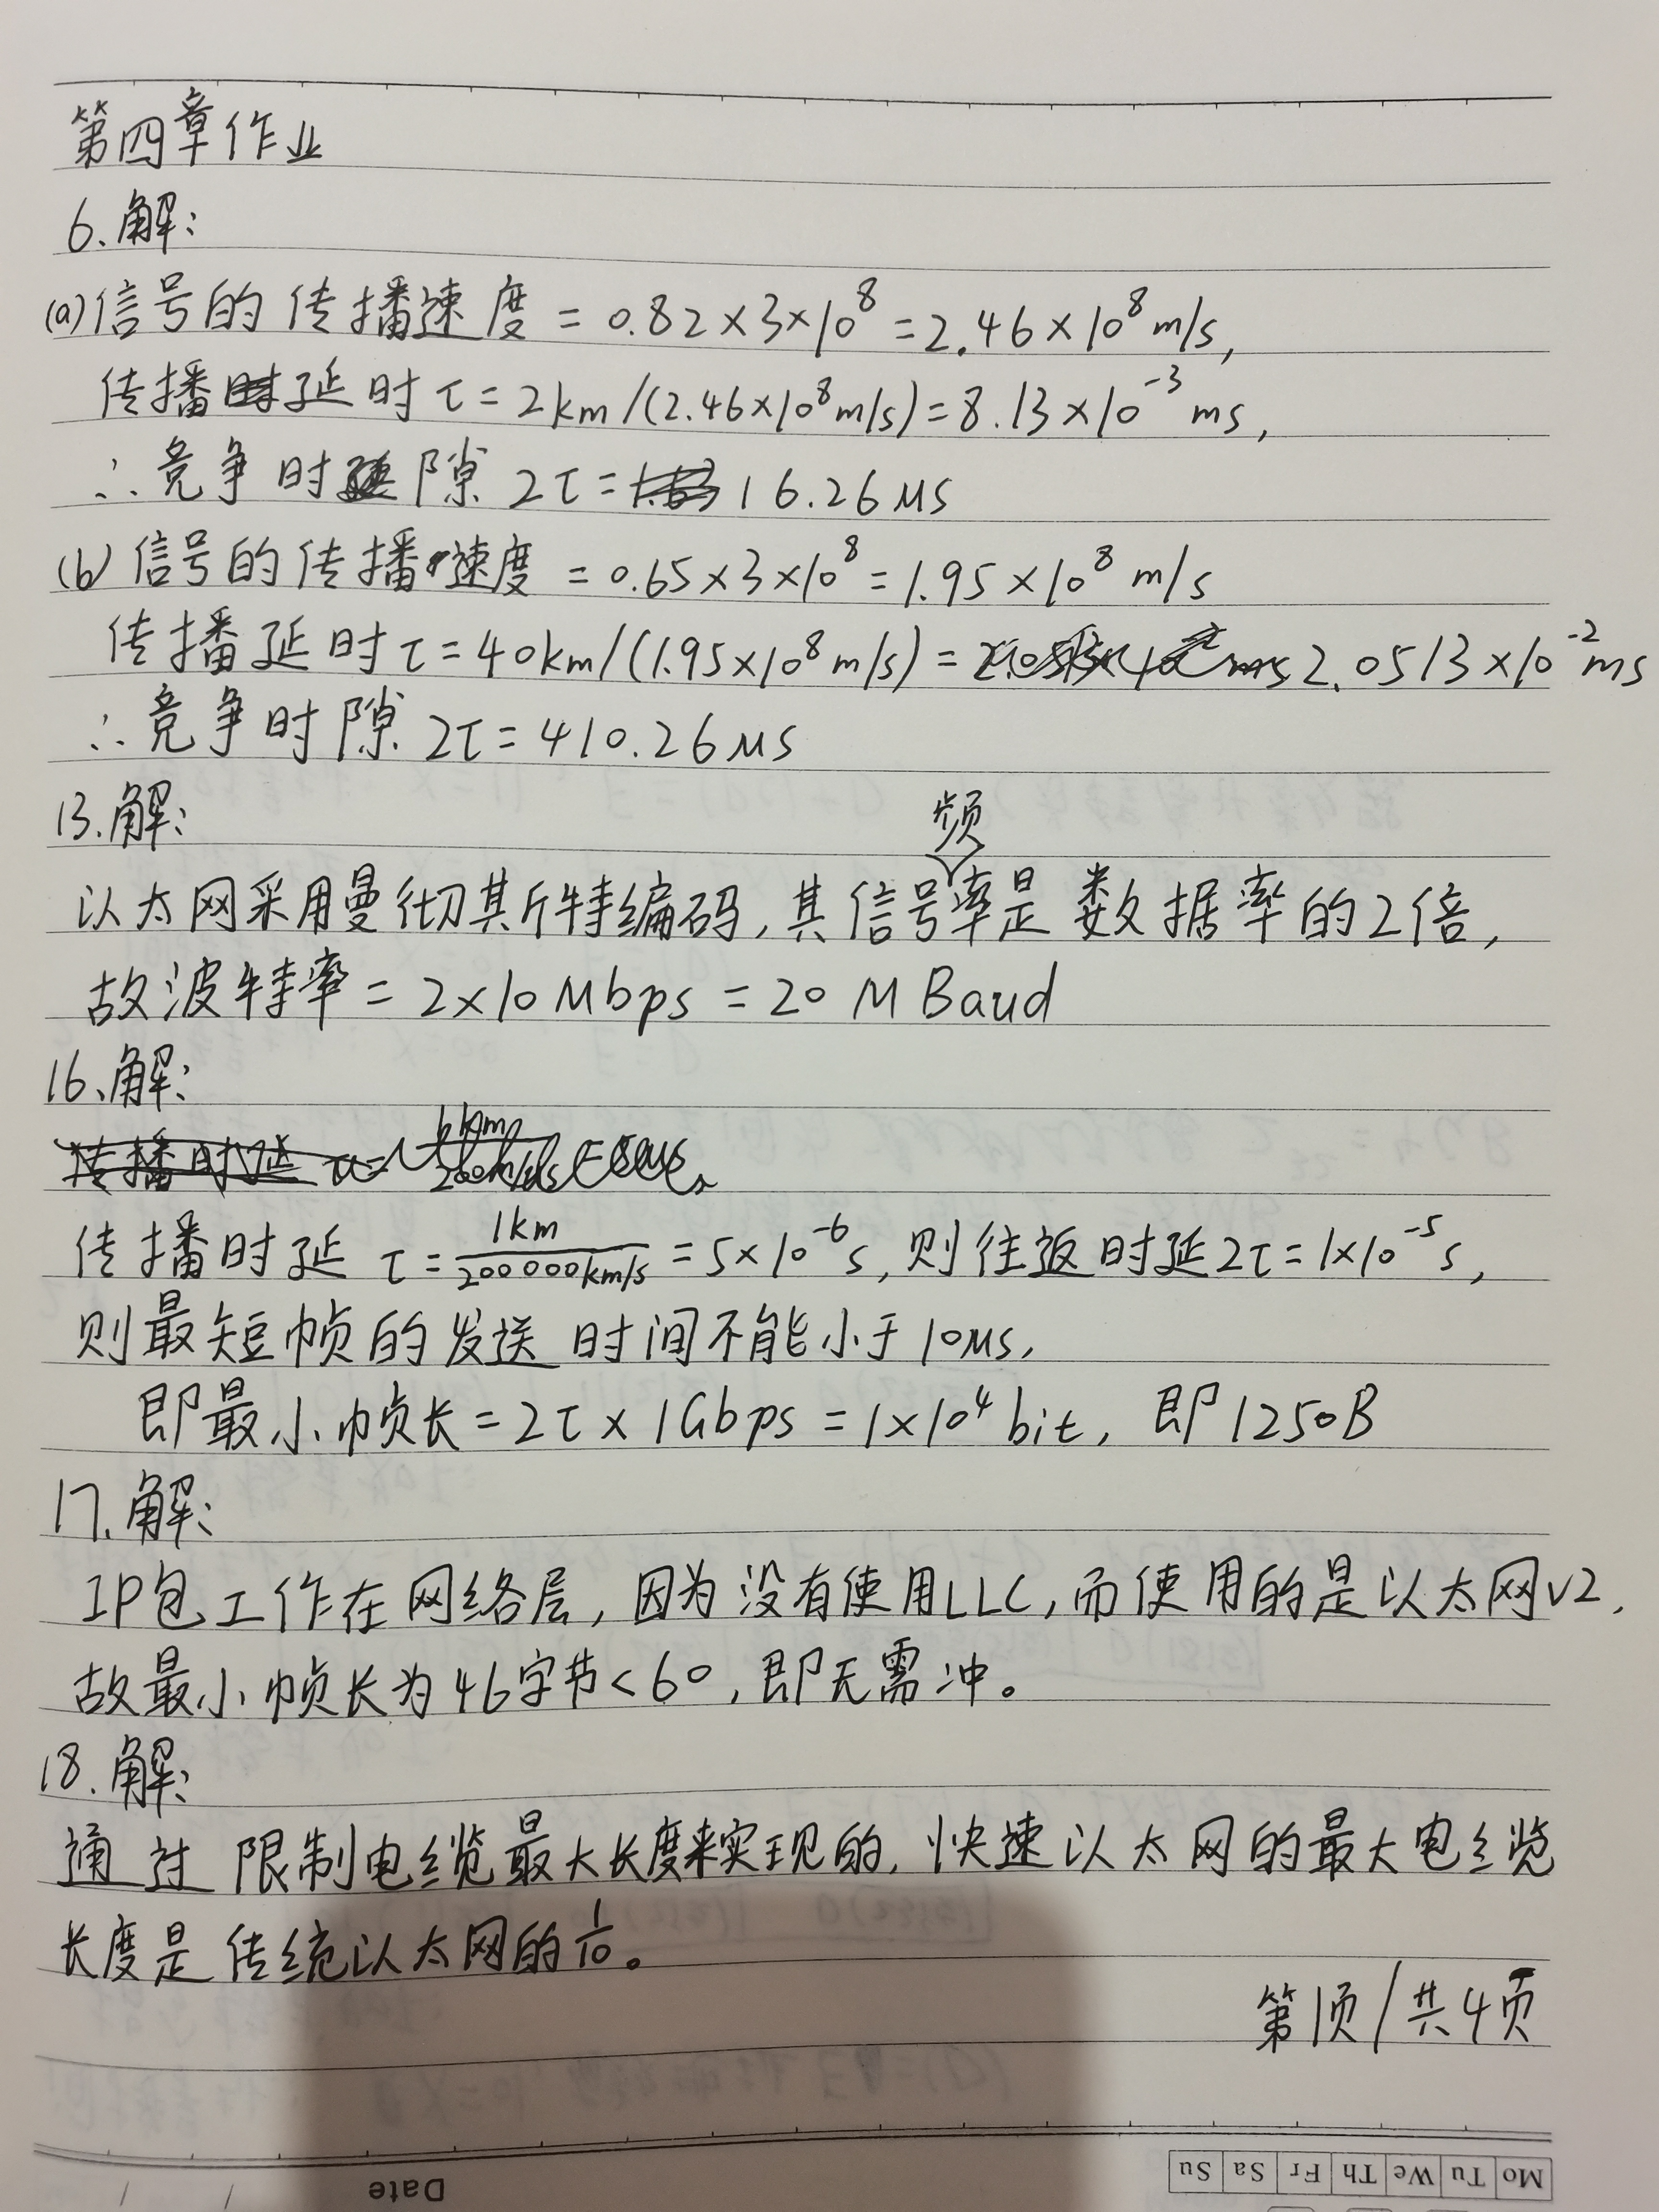 第四章作业
6.解:
(a)信号的传播速度 = 0.82×3×10⁸ = 2.46×10⁸ m/s,
传播延时 τ = 2km/(2.46×10⁸m/s) = 8.13×10⁻³ ms,
∴竞争时隙 2τ = 16.26 μs
(b)信号的传播速度 = 0.65×3×10⁸ = 1.95×10⁸ m/s
传播延时 τ = 40km/(1.95×10⁸ m/s) = 2.0513×10⁻² ms
∴竞争时隙 2τ = 410.26 μs
13.解:
以太网采用曼彻其斤特编码,其信号频率是数据率的2倍,
故波特率 = 2×10 Mbps = 20 M Baud
16.解:
传播时延 τ = 1km/200000km/s = 5×10⁻⁶s,则往返时延2τ = 1×10⁻⁵s,
则最短帧的发送时间不能小于10μs,
即最小帧长 = 2τ × 1Gbps = 1×10⁴ bit, 即1250B
17.解:
IP包工作在网络层,因为没有使用LLC,而使用的是以太网V2,
故最小帧长为46字节<60,即无需冲。
18.解:
通过限制电缆最大长度来实现的,快速以太网的最大电缆
长度是传统以太网的1/10。
第1页/共4页
Date
Mo Tu We Th Fr Sa Su